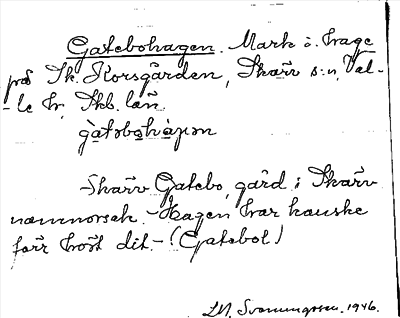 Gatebohagen. Mark o. hage
på Sk. Korsgården, Skärv s:n, Val-
-le hd, Skb. län.
gàtəbohàgən
Skärv Gatebo, gård i Skärv
nämnorsak. - Hagen har kanske
förr hört dit. - (Gatebol)
1946.